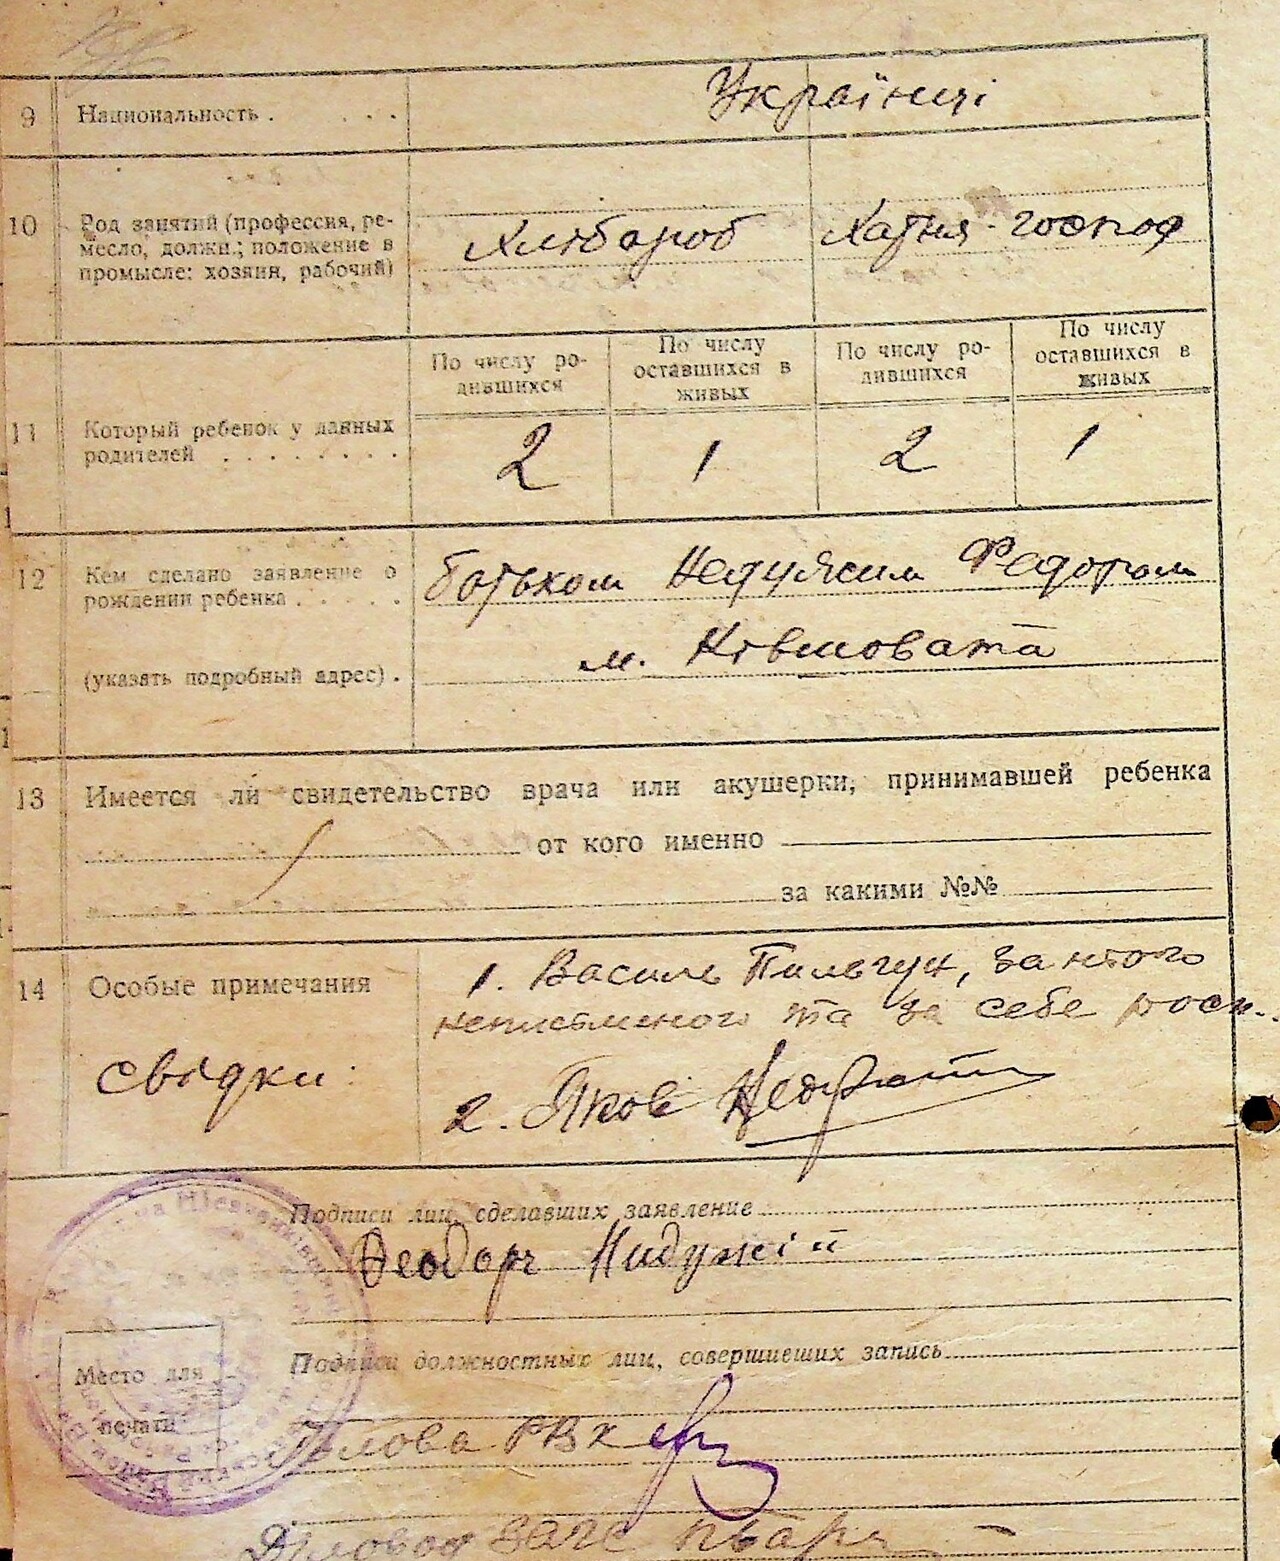 9 Национальность . . . . . Українці
10 Род занятий (профессия, ре-
месло, должн.; положение в
промысле: хозяин, рабочий)
Хлібороб Хатня-господ
По числу ро-
дившихся
По числу
оставшихся в
живых
По числу ро-
дившихся
По числу
оставшихся в
живых
11 Который ребенок у данных
родителей . . . . . . . .
2 1 2 1
12 Кем сделано заявление о
рождении ребенка . . . . .
батьком Недужим Федором
(указать подробный адрес) .
м.
13 Имеется ли свидетельство врача или акушерки, принимавшей ребенка
от кого именно
за какими №№
14 Особые примечания
свідки:
1. Василь Пильгун, за нього
неписьменого та за себе росп..
2. Яков
Подписи лиц, сделавших заявление
Феодоръ Нидужій
Подписи должностных лиц, совершивших запись
Место для
печати
Голова РВК
Діловод загс